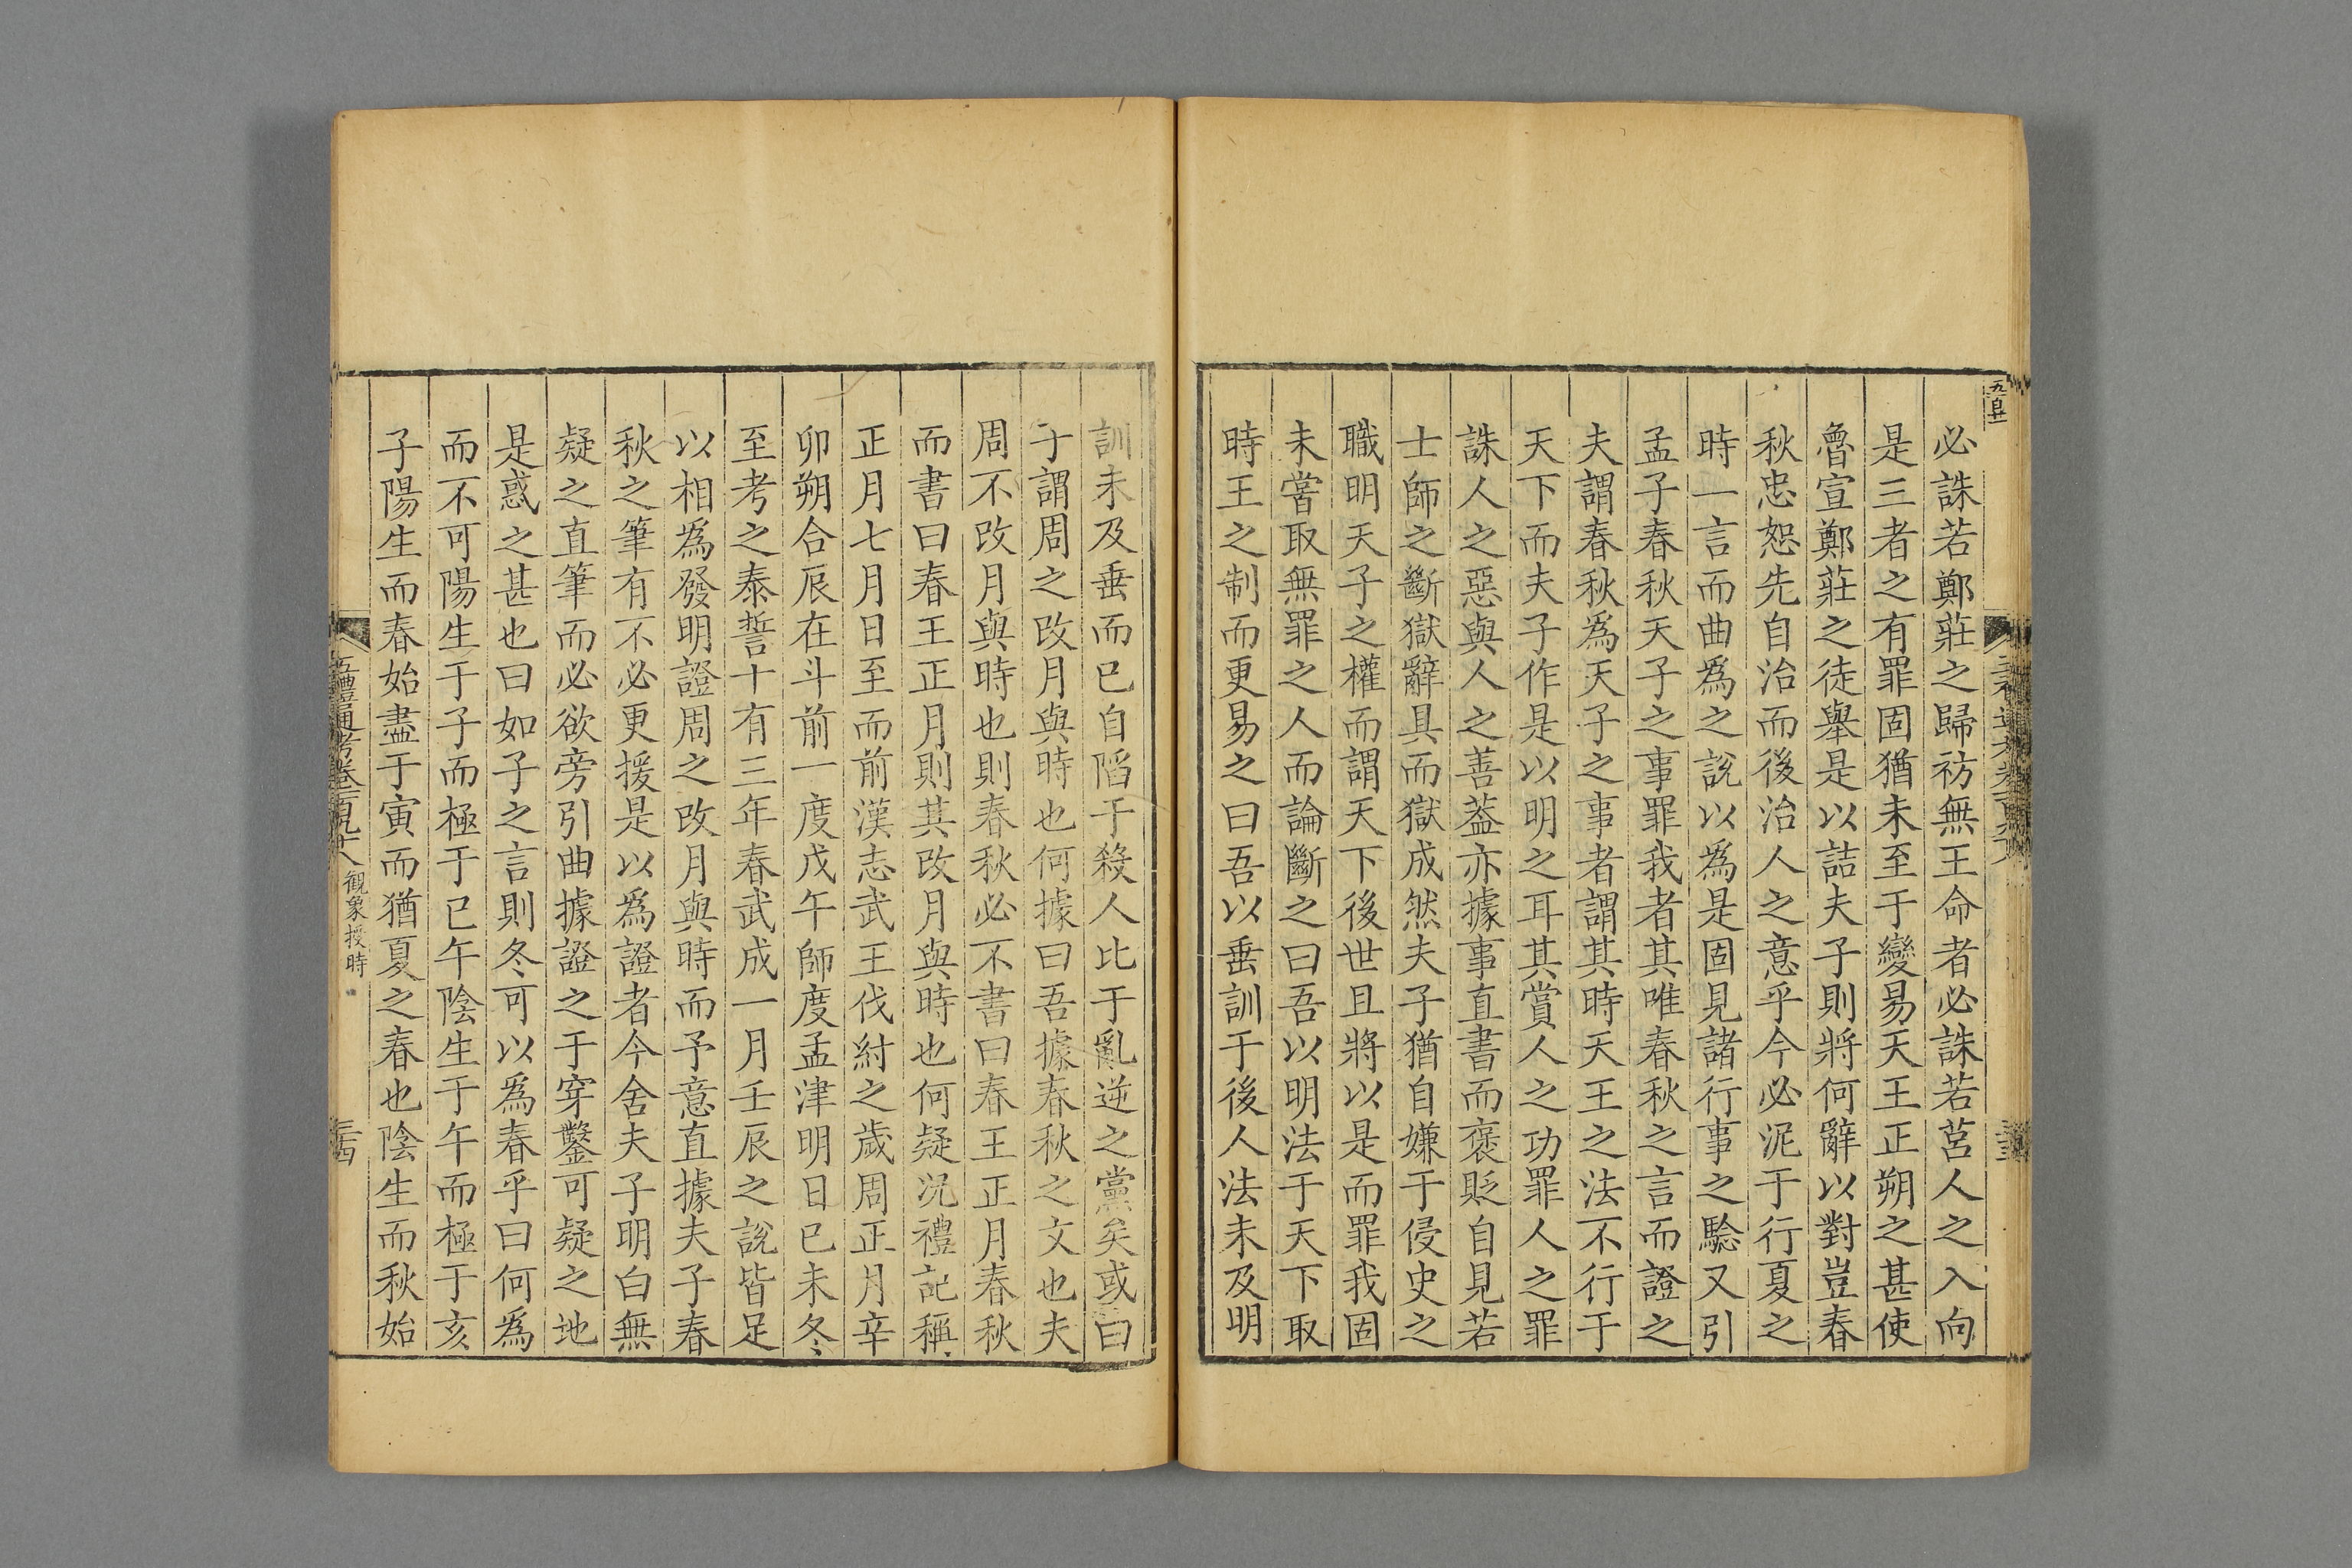 必誅若鄭莊之歸祊無王命者必誅若莒人之入向
是三者之有罪固猶未至于變易天王正朔之甚使
魯宣鄭莊之徒舉是以詰夫子則將何辭以對豈春
秋忠恕先自治而後治人之意乎今必泥于行夏之
時一言而曲爲之說以爲是固見諸行事之驗又引
孟子春秋天子之事罪我者其唯春秋之言而證之
夫謂春秋爲天子之事者謂其時天王之法不行于
天下而夫子作是以明之耳其賞人之功罪人之罪
誅人之惡與人之善葢亦據事直書而褒貶自見若
士師之斷獄辭具而獄成然夫子猶自嫌于侵史之
職明天子之權而謂天下後世且將以是而罪我固
未嘗取無罪之人而論斷之曰吾以明法于天下取
時王之制而更易之曰吾以垂訓于後人法未及明
訓未及垂而已自陷于殺人比于亂逆之黨矣或曰
子謂周之改月與時也何據曰吾據春秋之文也夫
周不改月與時也則春秋必不書曰春王正月春秋
而書曰春王正月則其改月與時也何疑況禮記稱
正月七月日至而前漢志武王伐紂之歲周正月辛
卯朔合辰在斗前一度戊午師度孟津明日已未冬
至考之泰誓十有三年春武成一月壬辰之說皆足
以相爲發明證周之改月與時而予意直據夫子春
秋之筆有不必更援是以爲證者今舍夫子明白無
疑之直筆而必欲旁引曲據證之于穿鑿可疑之地
是惑之甚也曰如子之言則冬可以爲春乎曰何爲
而不可陽生于子而極于巳午陰生于午而極于亥
子陽生而春始盡于寅而猶夏之春也陰生而秋始
五禮通考卷一百九十八 觀象授時
三百四